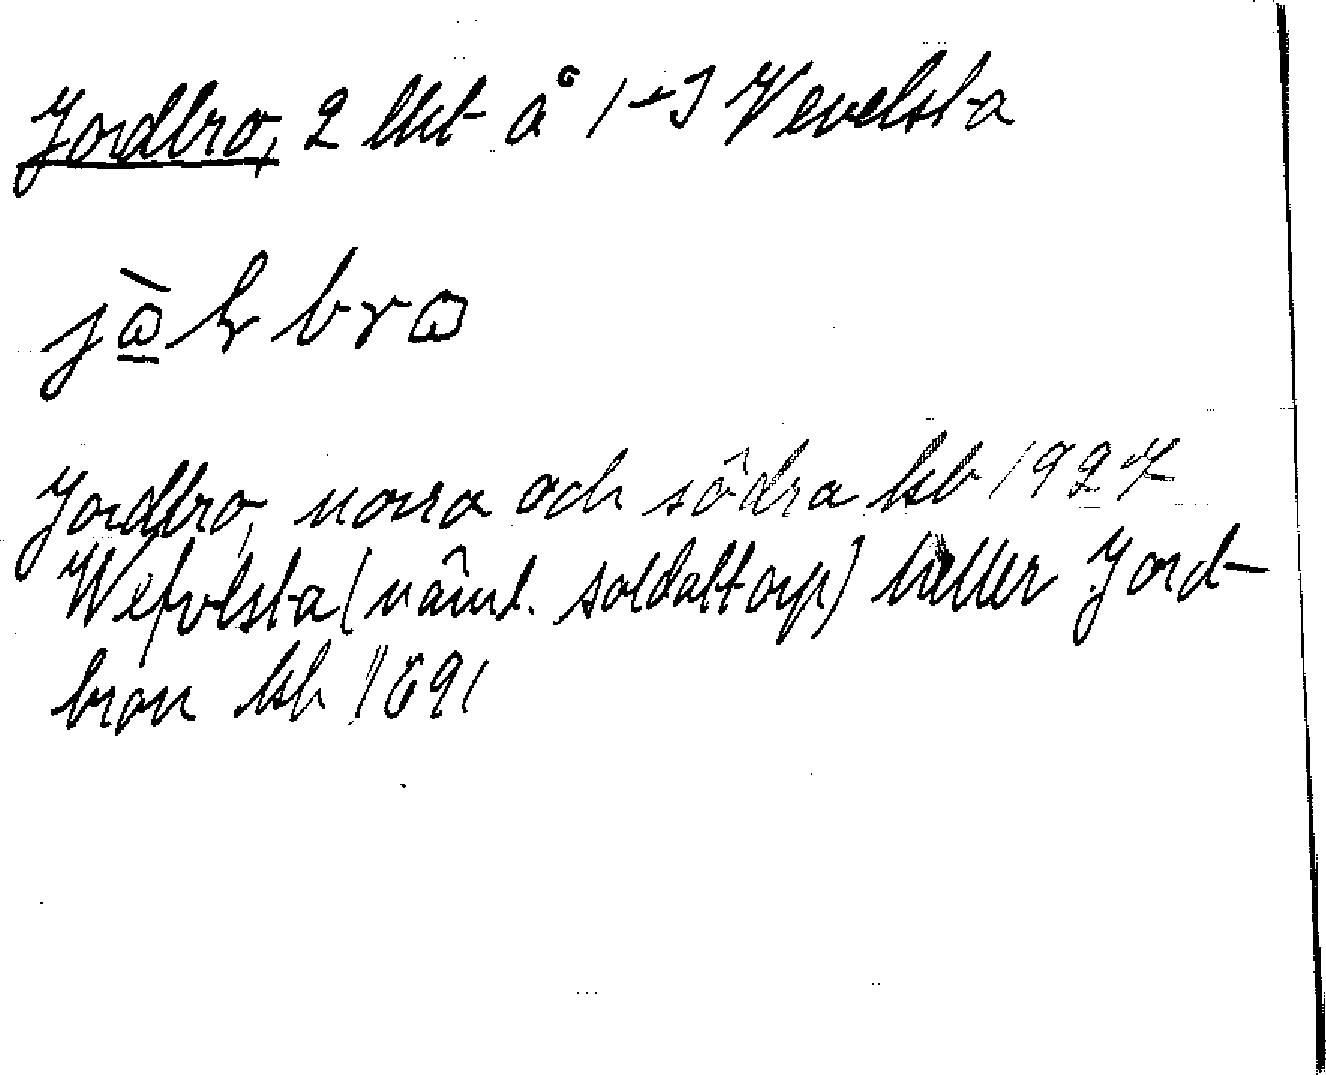 Jordbro, 2 lht å 1-3 Vevelsta
Jordbro, norra och södra kb 1927
Wefvelsta (näml. soldattorp) heller Jord-
bron kb 1691